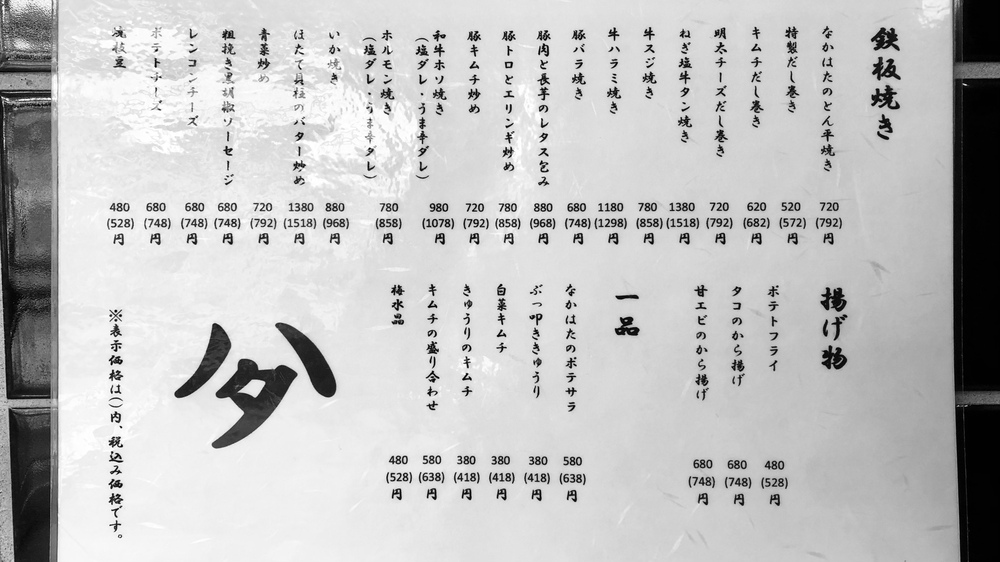 鉄板焼き
なかはたのとん平焼き 720 (792) 円
特製だし巻き 520 (572) 円
キムチだし巻き 620 (682) 円
明太チーズだし巻き 720 (792) 円
ねぎ塩牛タン焼き 1380 (1518) 円
牛スジ焼き 780 (858) 円
牛ハラミ焼き 1180 (1298) 円
豚バラ焼き 680 (748) 円
豚肉と長芋のレタス包み 880 (968) 円
豚トロとエリンギ炒め 780 (858) 円
豚キムチ炒め 720 (792) 円
和牛ホソ焼き 980 (1078) 円
(塩ダレ・うま辛ダレ)
ホルモン焼き 780 (858) 円
(塩ダレ・うま辛ダレ)
いか焼き 880 (968) 円
ほたて貝柱のバター炒め 1380 (1518) 円
青菜炒め 720 (792) 円
粗挽き黒胡椒ソーセージ 680 (748) 円
レンコンチーズ 680 (748) 円
ポテトチーズ 680 (748) 円
焼枝豆 480 (528) 円
揚げ物
ポテトフライ 480 (528) 円
タコのから揚げ 680 (748) 円
甘エビのから揚げ 680 (748) 円
一品
なかはたのポテサラ 580 (638) 円
ぶっ叩ききゅうり 380 (418) 円
白菜キムチ 380 (418) 円
きゅうりのキムチ 380 (418) 円
キムチの盛り合わせ 580 (638) 円
梅水晶 480 (528) 円
※表示価格は()内、税込み価格です。